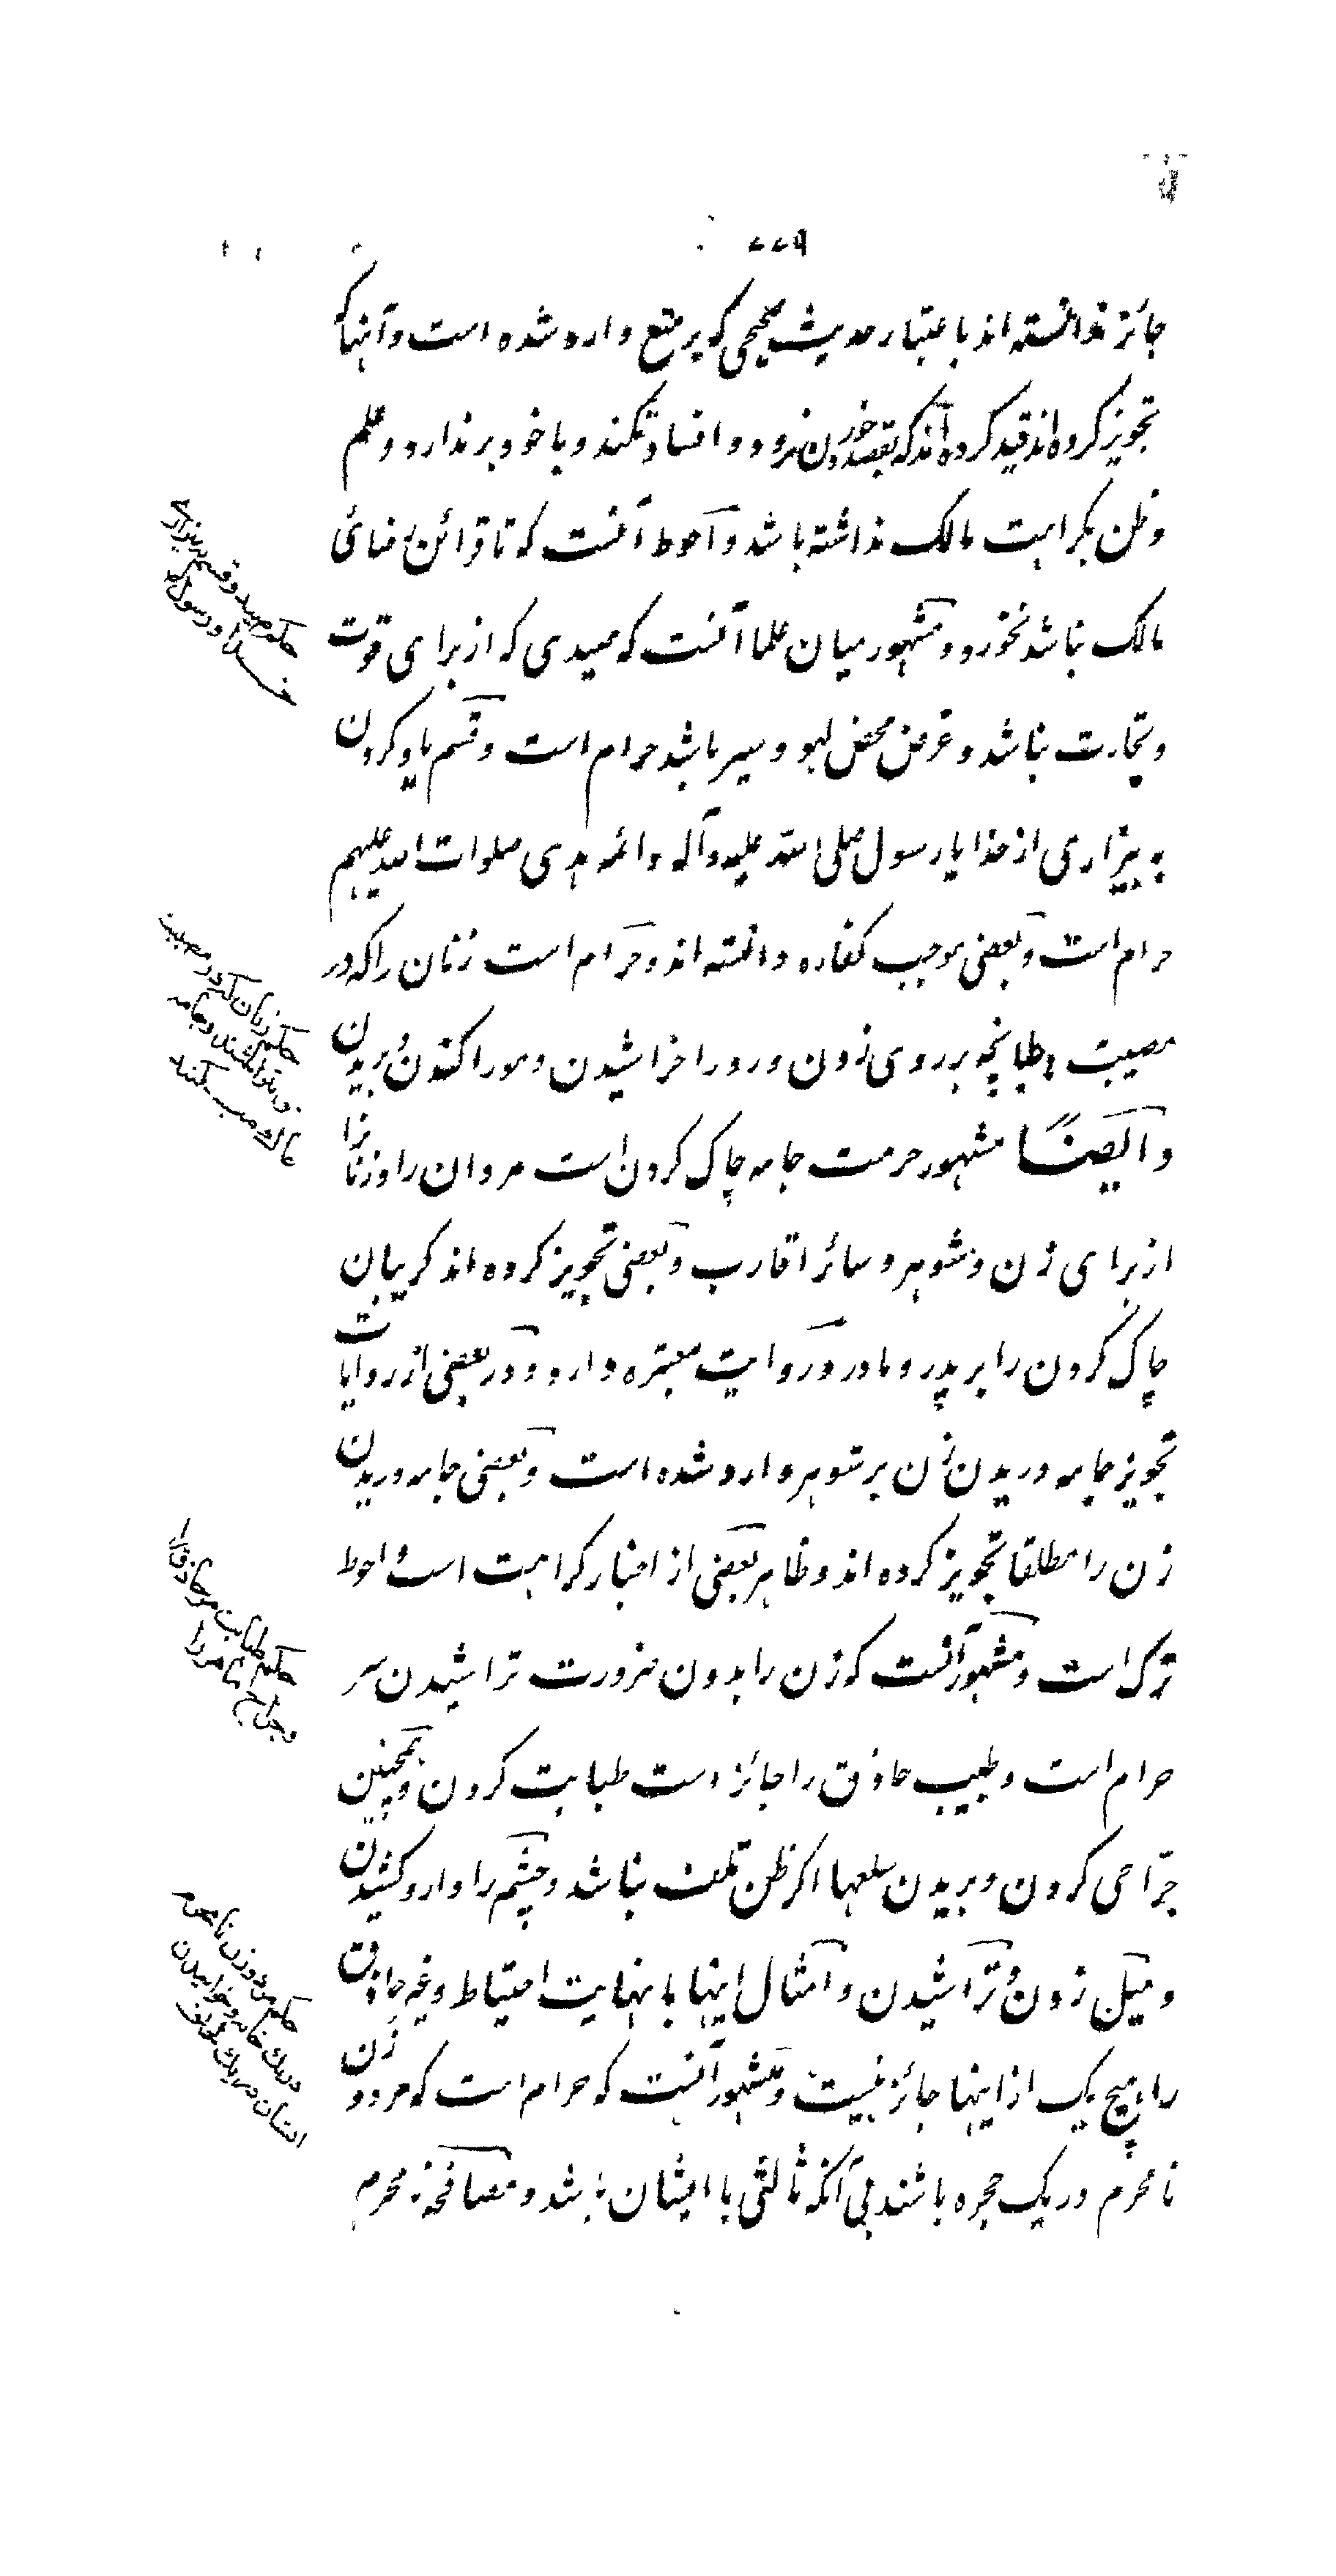 ۲۲۹
جائز ندانسته اند باعتبار حدیث صحیحی که بر منع وارد شده است و آنها که
تجویز کرده اند قید کرده اند که بقصد خوردن نرود و افساد نکند و با خود بر ندارد و علم
و ظن بکراهت مالک نداشته باشد و احوط آنست که تا قرائن رضائی
مالک نباشد نخورد و مشهور میان علما آنست که صیدی که از برای قوت
و تجارت نباشد و غرض محض لهو و سیر باشد حرام است و قسم یاد کردن
به بیزاری از خدا یا رسول صلی الله علیه و آله و ائمه هدی صلوات الله علیهم
حرام است و بعضی موجب کفاره دانسته اند و حرام است زنان را که در
مصیبت طپانچه بر روی زدن و رو را خراشیدن و مو را کندن و بریدن
و ایضًا مشهور حرمت جامه چاک کردن است مردان را و زنانرا
از برای زن و شوهر و سائر اقارب و بعضی تجویز کرده اند کریبان
چاک کردن را بر پدر و مادر و روایت معتبره دارد و در بعضی از روایات
تجویز جامه دریدن زن بر شوهر وارد شده است و بعضی جامه دریدن
زن را مطلقا تجویز کرده اند و ظاهر بعضی از اخبار کراهت است و احوط
ترک است و مشهور آنست که زن را بدون ضرورت تراشیدن سر
حرام است و طبیب حاذق را جائز است طبابت کردن و همچنین
جرّاحی کردن و بریدن سلعها اکر ظن تلف نباشد و چشم را دارو کشیدن
و میل زدن و تراشیدن و امثال اینها با نهایت احتیاط و غیر حاذق
را هیچ یک از اینها جائز نیست و مشهور آنست که حرام است که مرد و زن
نامحرم در یک حجره باشند بی آنکه ثالثی با ایشان باشد و مصافحه نامحرم
حکم صید و قسم به بیزاری
خدا و رسول
حکم زنان که در مصیبت
حکم طبابت مر حاذق را
و جراح ماهر را
حکم مرد و زن نامحرم